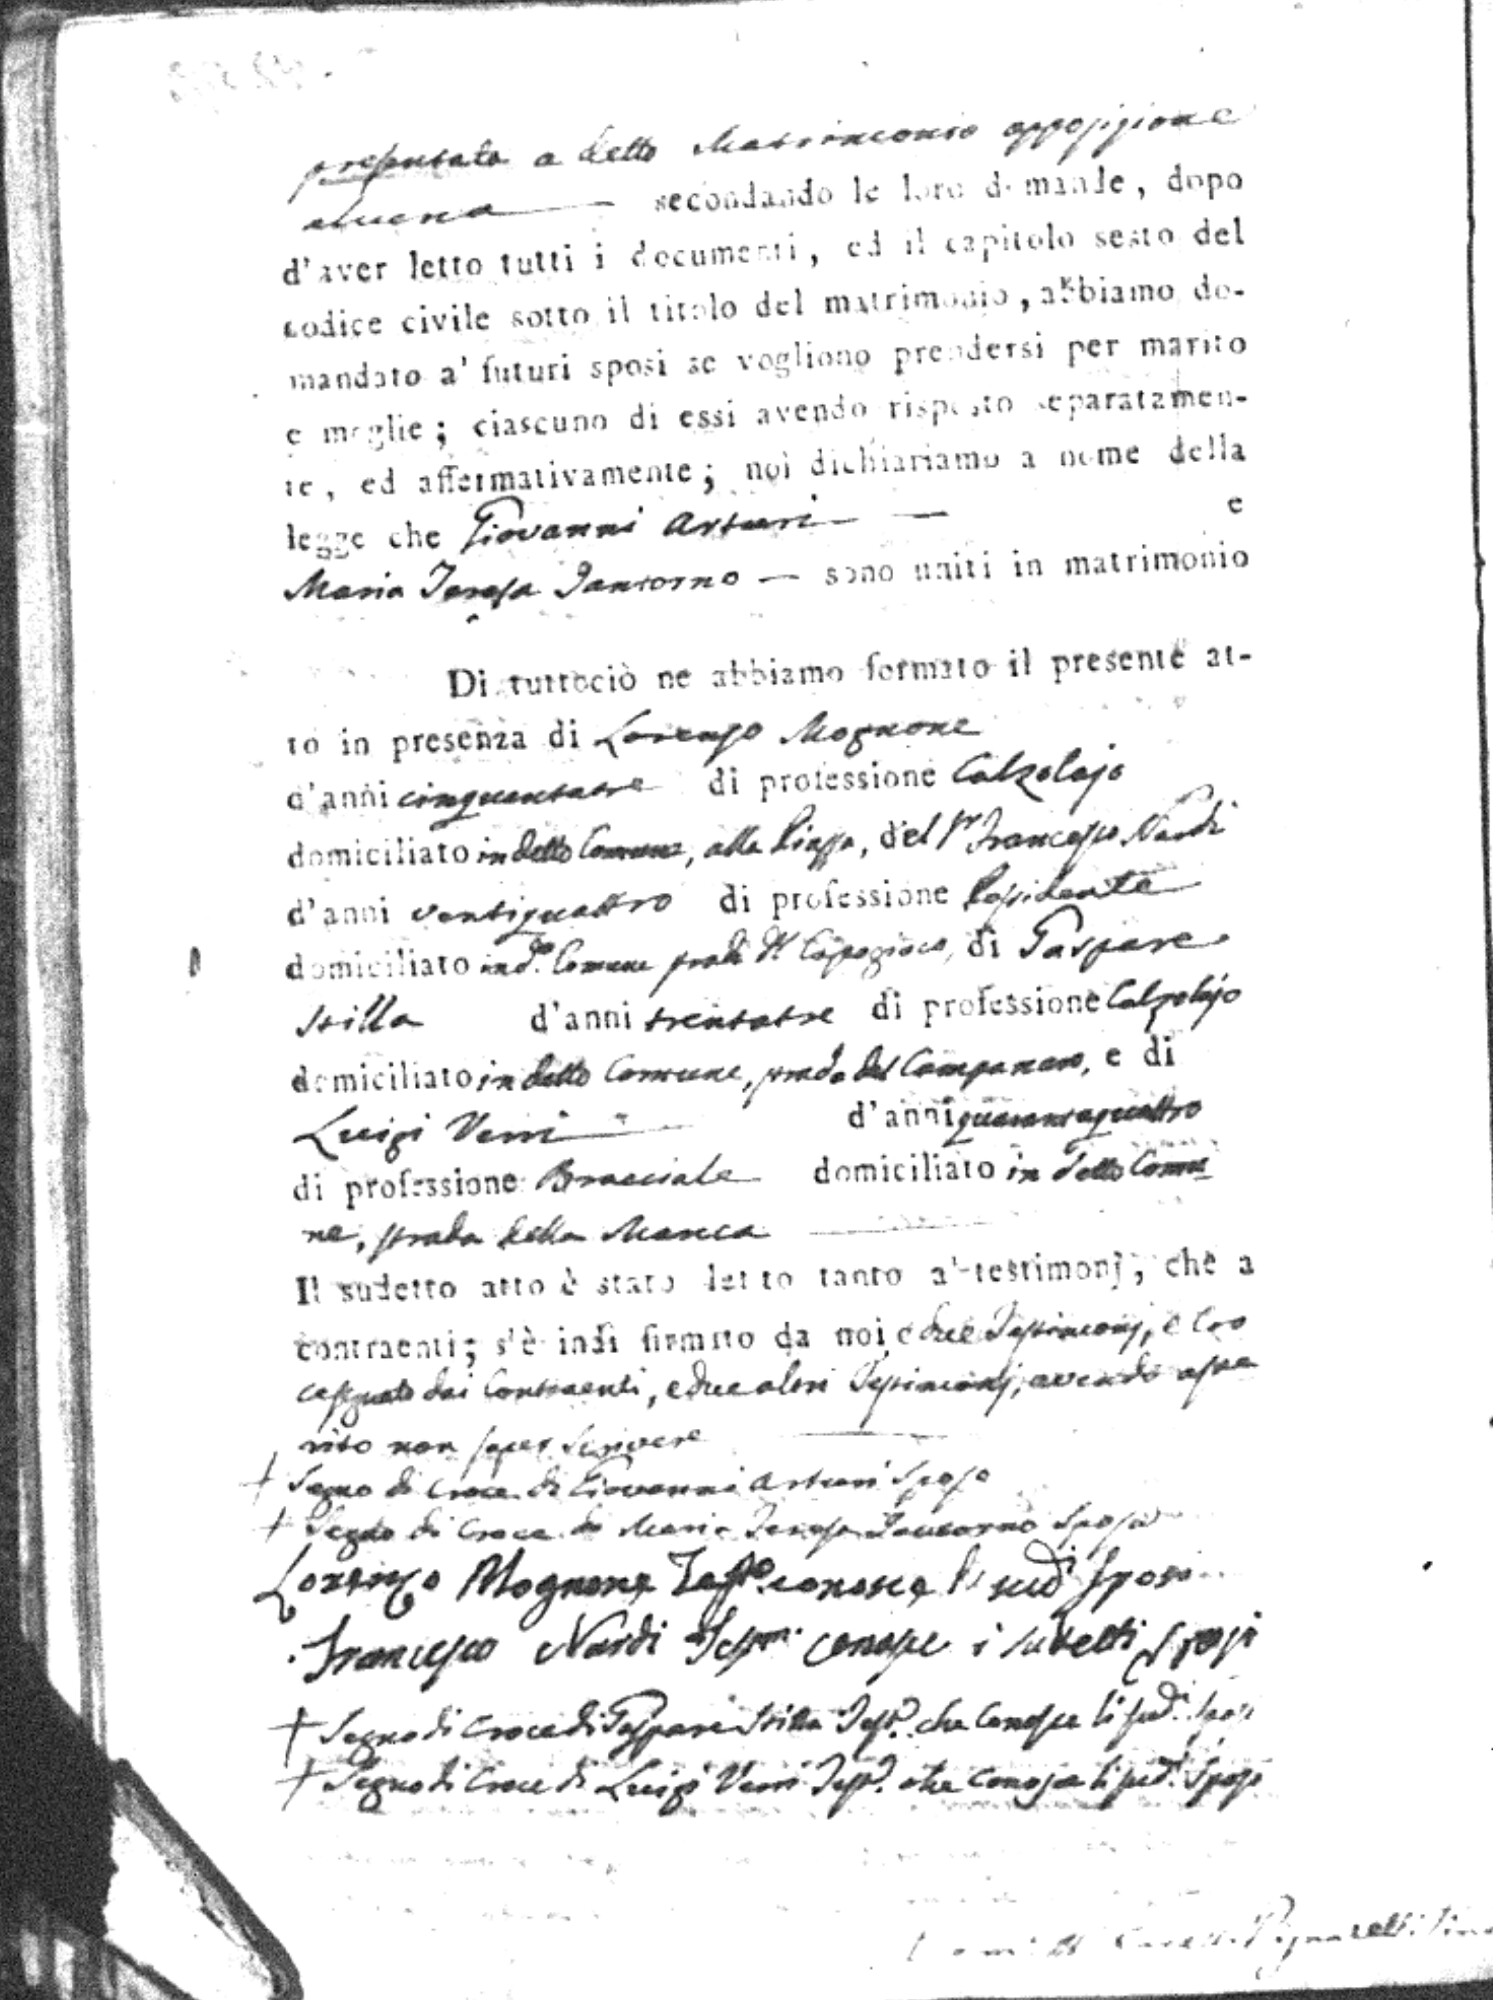 presentata a detto Matrimonio opposizione
alcuna secondando le loro dimande, dopo
d'aver letto tutti i documenti, ed il capitolo sesto del
codice civile sotto il titolo del matrimonio, abbiamo do-
mandato a' futuri sposi se vogliono prendersi per marito
e moglie; ciascuno di essi avendo risposto separatamen-
te, ed affermativamente; noi dichiariamo a nome della
legge che Giovanni Arturi — e
Maria Teresa Jantorno — sono uniti in matrimonio
Di tuttociò ne abbiamo formato il presente at-
to in presenza di Lorenzo Mognone
d'anni cinquantatre di professione Calzolajo
domiciliato in detto Comune, alla Piazza, del Sr Francesco Nardi
d'anni ventiquattro di professione Possidente
domiciliato in do. Comune, di Gaspare
Stilla d'anni trentatre di professione Calzolajo
domiciliato in detto Comune, strada del Campanaro, e di
Luigi Verri d'anni quarantaquattro
di professione Bracciale domiciliato in detto Comu-
ne, strada della Manca
Il sudetto atto è stato letto tanto a' testimonj, che a
contraenti; s'è indi firmato da noi e due Testimonj, e Cro
cesegnato dai Contraenti, e due altri Testimonj, avendo asse
rito non saper scrivere
+ Segno di Croce di Giovanni Arturi Sposo
+ Segno di Croce di Maria Teresa Jantorno Sposa
Lorenzo Mognone Testo. conosce li sudi Sposi
Francesco Nardi Testim. conosce i sudetti Sposi
+ Segno di Croce di Gaspare Stilla Testo. che Conosce li sudi. Sposi
+ Segno di Croce di Luigi Verri Testo. che Conosce li sudi. Sposi
Pignatelli